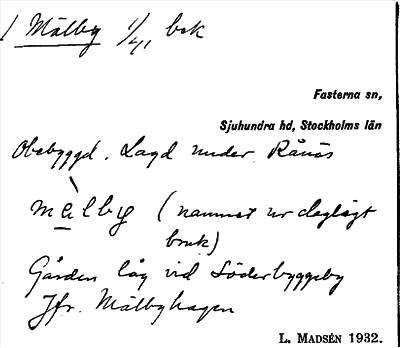 1 Mälby 1/41 bok
Fasterna sn,
Sjuhundra hd, Stockholms län
Obebyggd. Lagd under Rånäs
mèlby (namnet ur dagligt
bruk)
Gården låg vid Söderbyggeby
Jfr. Mälbyhagen
L. MADSÉN 1932.